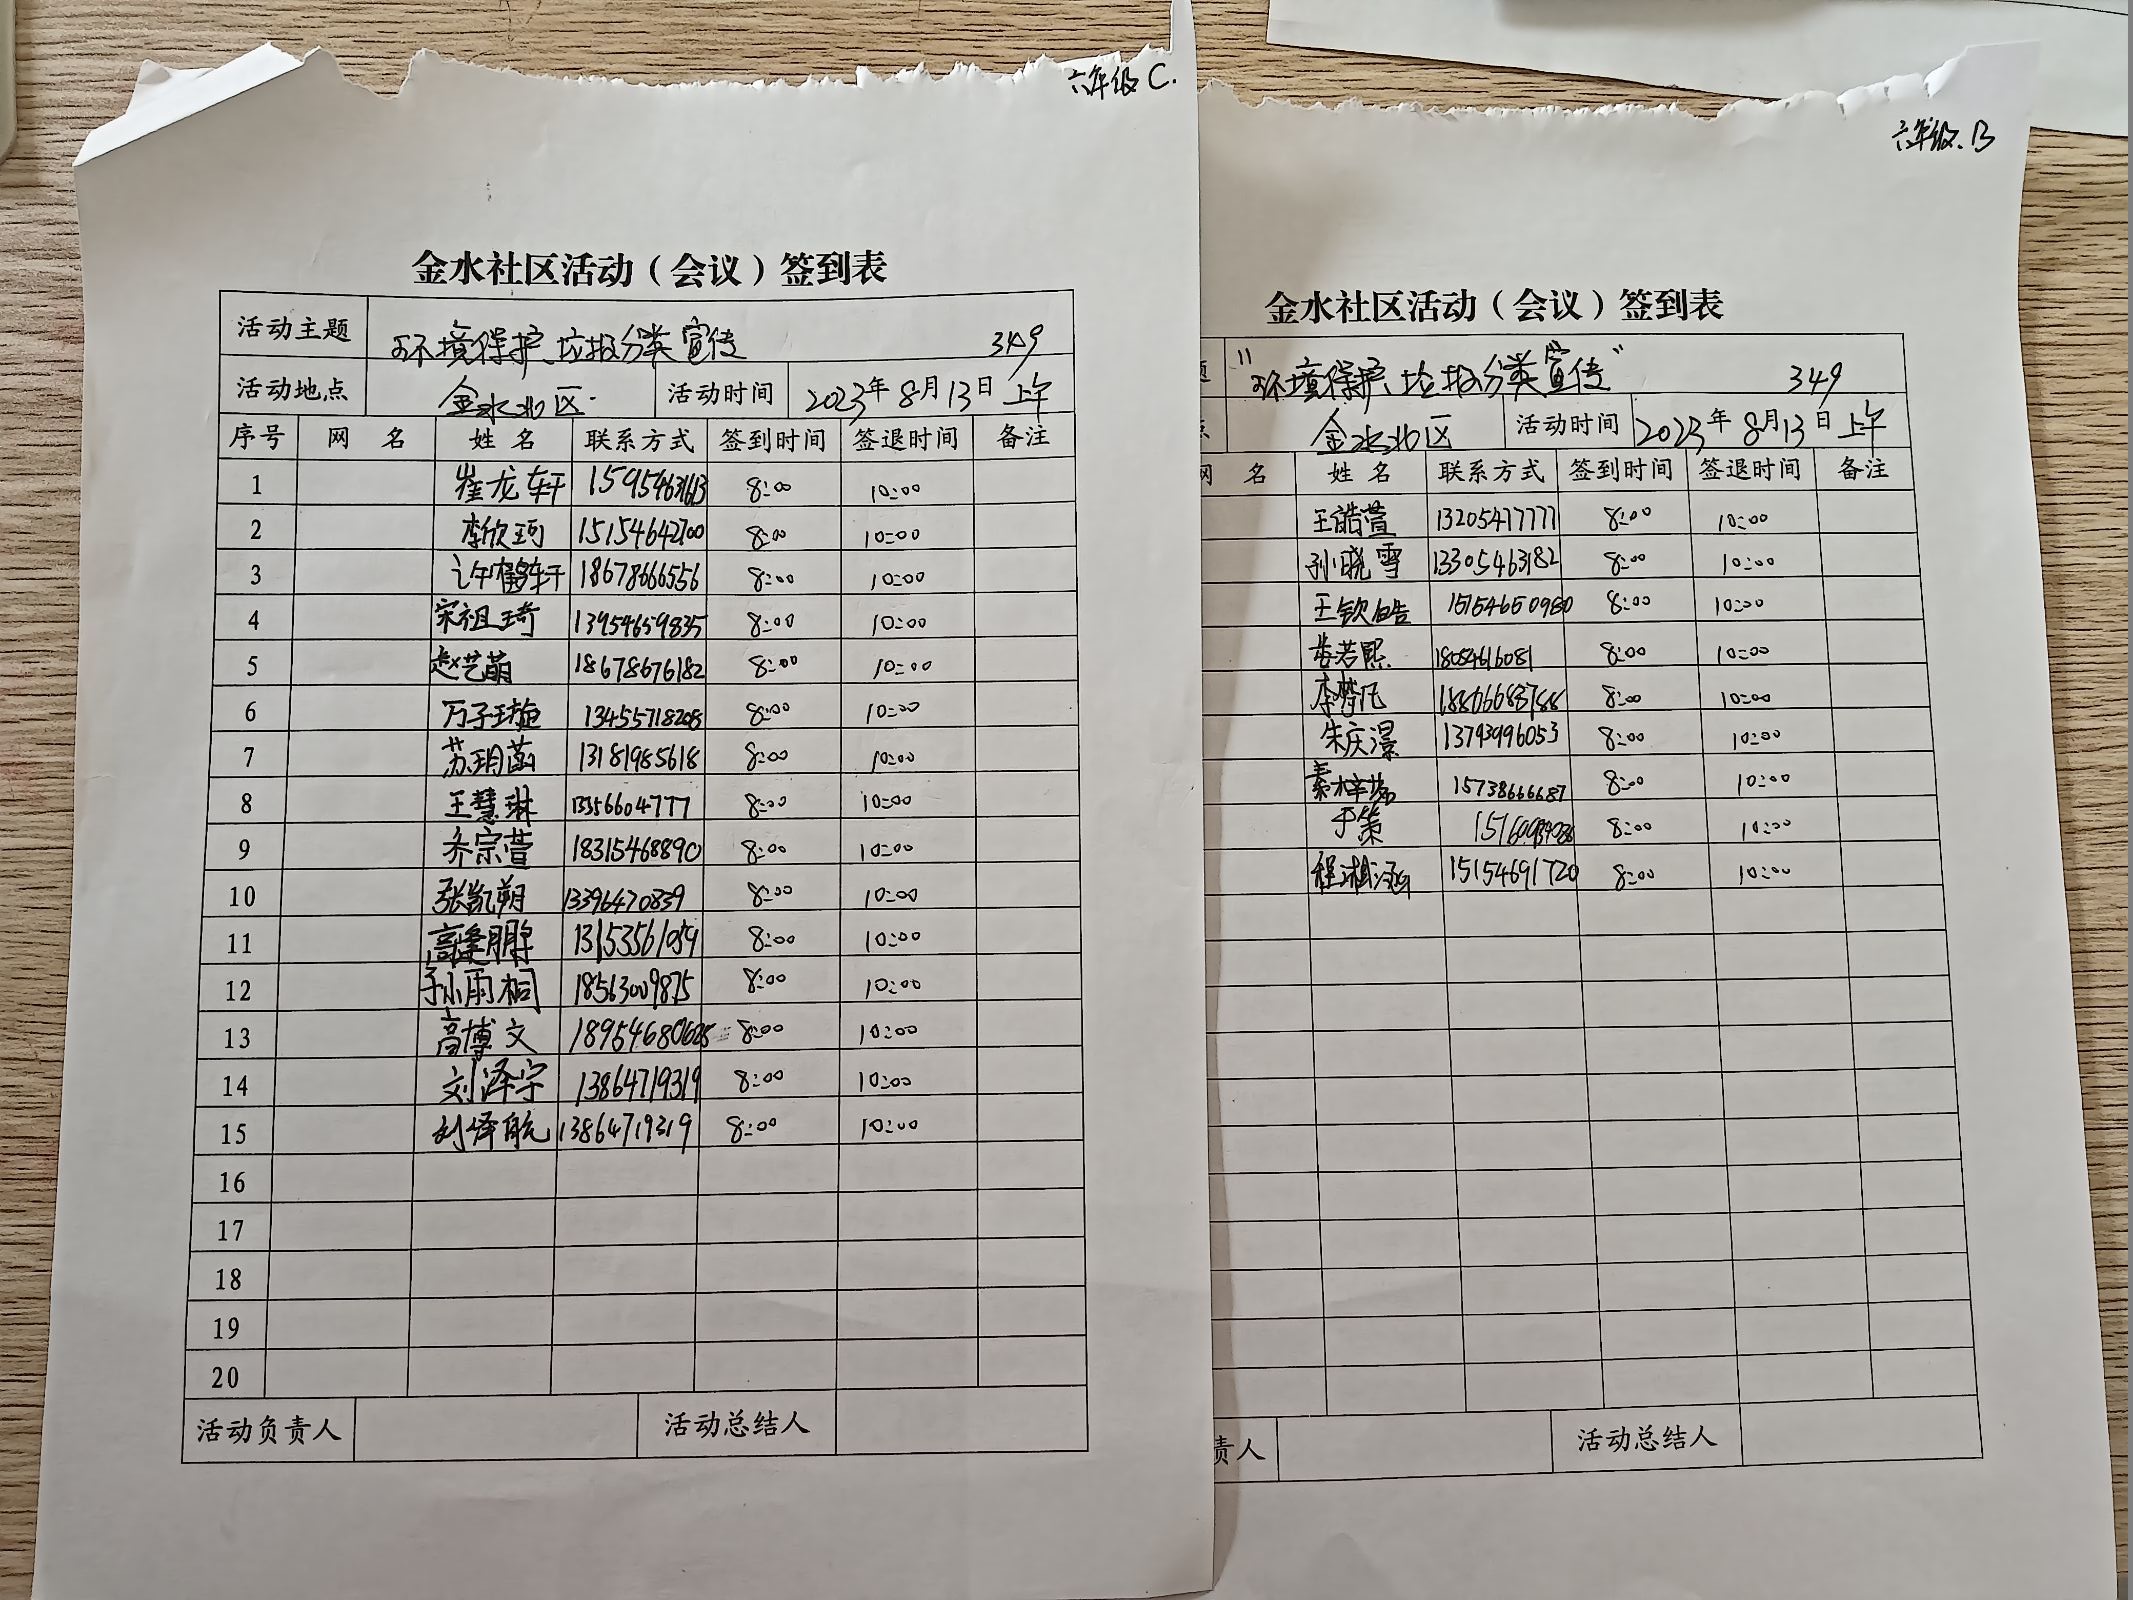 六年级 C.
金水社区活动（会议）签到表
活动主题 环境保护、垃圾分类宣传 349
活动地点 金水北区. 活动时间 2023年8月13日上午
序号 网 名 姓 名 联系方式 签到时间 签退时间 备注
1 崔龙轩 15954631613 8:00 10:00
2 李欣珂 15154642700 8:00 10:00
3 许馨轩 18678666556 8:00 10:00
4 宋祖琦 13954659835 8:00 10:00
5 赵艺萌 18678676182 8:00 10:00
6 万子璇 13455718208 8:00 10:00
7 苏玥菡 13181985618 8:00 10:00
8 王慧琳 13356604777 8:00 10:00
9 齐宗萱 18315468890 8:00 10:00
10 张凯朔 13396470839 8:00 10:00
11 高逢鹏 13153561059 8:00 10:00
12 孙雨桐 18563009875 8:00 10:00
13 高博文 8:00 10:00
14 刘泽宇 13864719319 8:00 10:00
15 刘泽航 13864719319 8:00 10:00
16
17
18
19
20
活动负责人 活动总结人
六年级.B
金水社区活动（会议）签到表
题 "环境保护、垃圾分类宣传" 349
金水北区 活动时间 2023年8月13日上午
网 名 姓 名 联系方式 签到时间 签退时间 备注
王皓萱 13205477777 8:00 10:00
孙晓雪 13305463182 8:00 10:00
王钦皓 15154650980 8:00 10:00
娄若熙 18054616081 8:00 10:00
李梦凡 8:00 10:00
朱庆濠 13793996053 8:00 10:00
秦梓荔 15738666687 8:00 10:00
于策 8:00 10:00
程湘涵 15154691720 8:00 10:00
责人 活动总结人